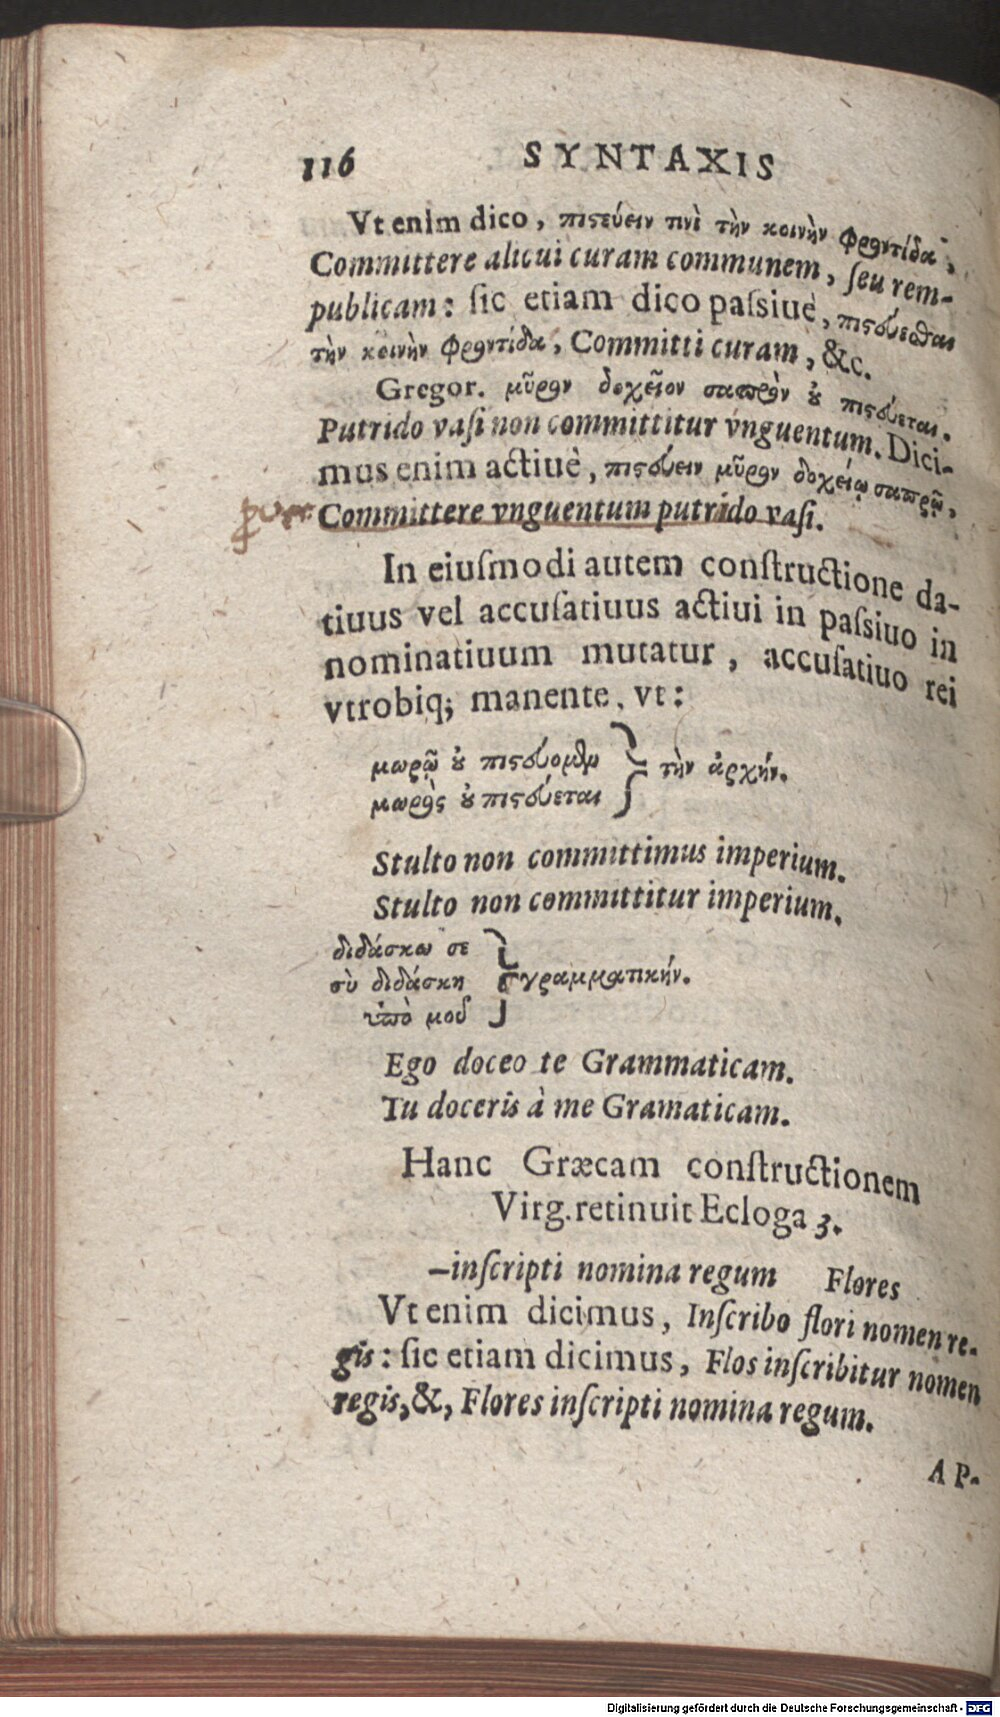 116 SYNTAXIS
Vt enim dico, πιστεύειν τινὶ τὴν κοινὴν φροντίδα,
Committere alicui curam communem, ſeu rem-
publicam: ſic etiam dico paſsiuè, πιστεύεσθαι
τὴν κοινὴν φροντίδα, Committi curam, &c.
Gregor. μῦρον δοχεῖον σαπρὸν οὐ πιστεύεται.
Putrido vaſi non committitur vnguentum. Dici-
mus enim actiuè, πιστεύειν μῦρον δοχείῳ σαπρῷ,
Committere vnguentum putrido vaſi.
In eiuſmodi autem conſtructione da-
tiuus vel accuſatiuus actiui in paſsiuo in
nominatiuum mutatur, accuſatiuo rei
vtrobiq; manente, vt:
μωρῷ οὐ πιστεύομεν
τὴν ἀρχήν.
μωρὸς οὐ πιστεύεται
Stulto non committimus imperium.
Stulto non committitur imperium.
διδάσκω σε
σὺ διδάσκῃ γραμματικήν.
ὑπὸ μοῦ
Ego doceo te Grammaticam.
Tu doceris à me Gramaticam.
Hanc Græcam conſtructionem
Virg. retinuit Ecloga 3.
—inſcripti nomina regum Flores
Vt enim dicimus, Inſcribo flori nomen re-
gis: ſic etiam dicimus, Flos inſcribitur nomen
regis, &, Flores inſcripti nomina regum.
AP-
Digitalisierung gefördert durch die Deutsche Forschungsgemeinschaft - DFG